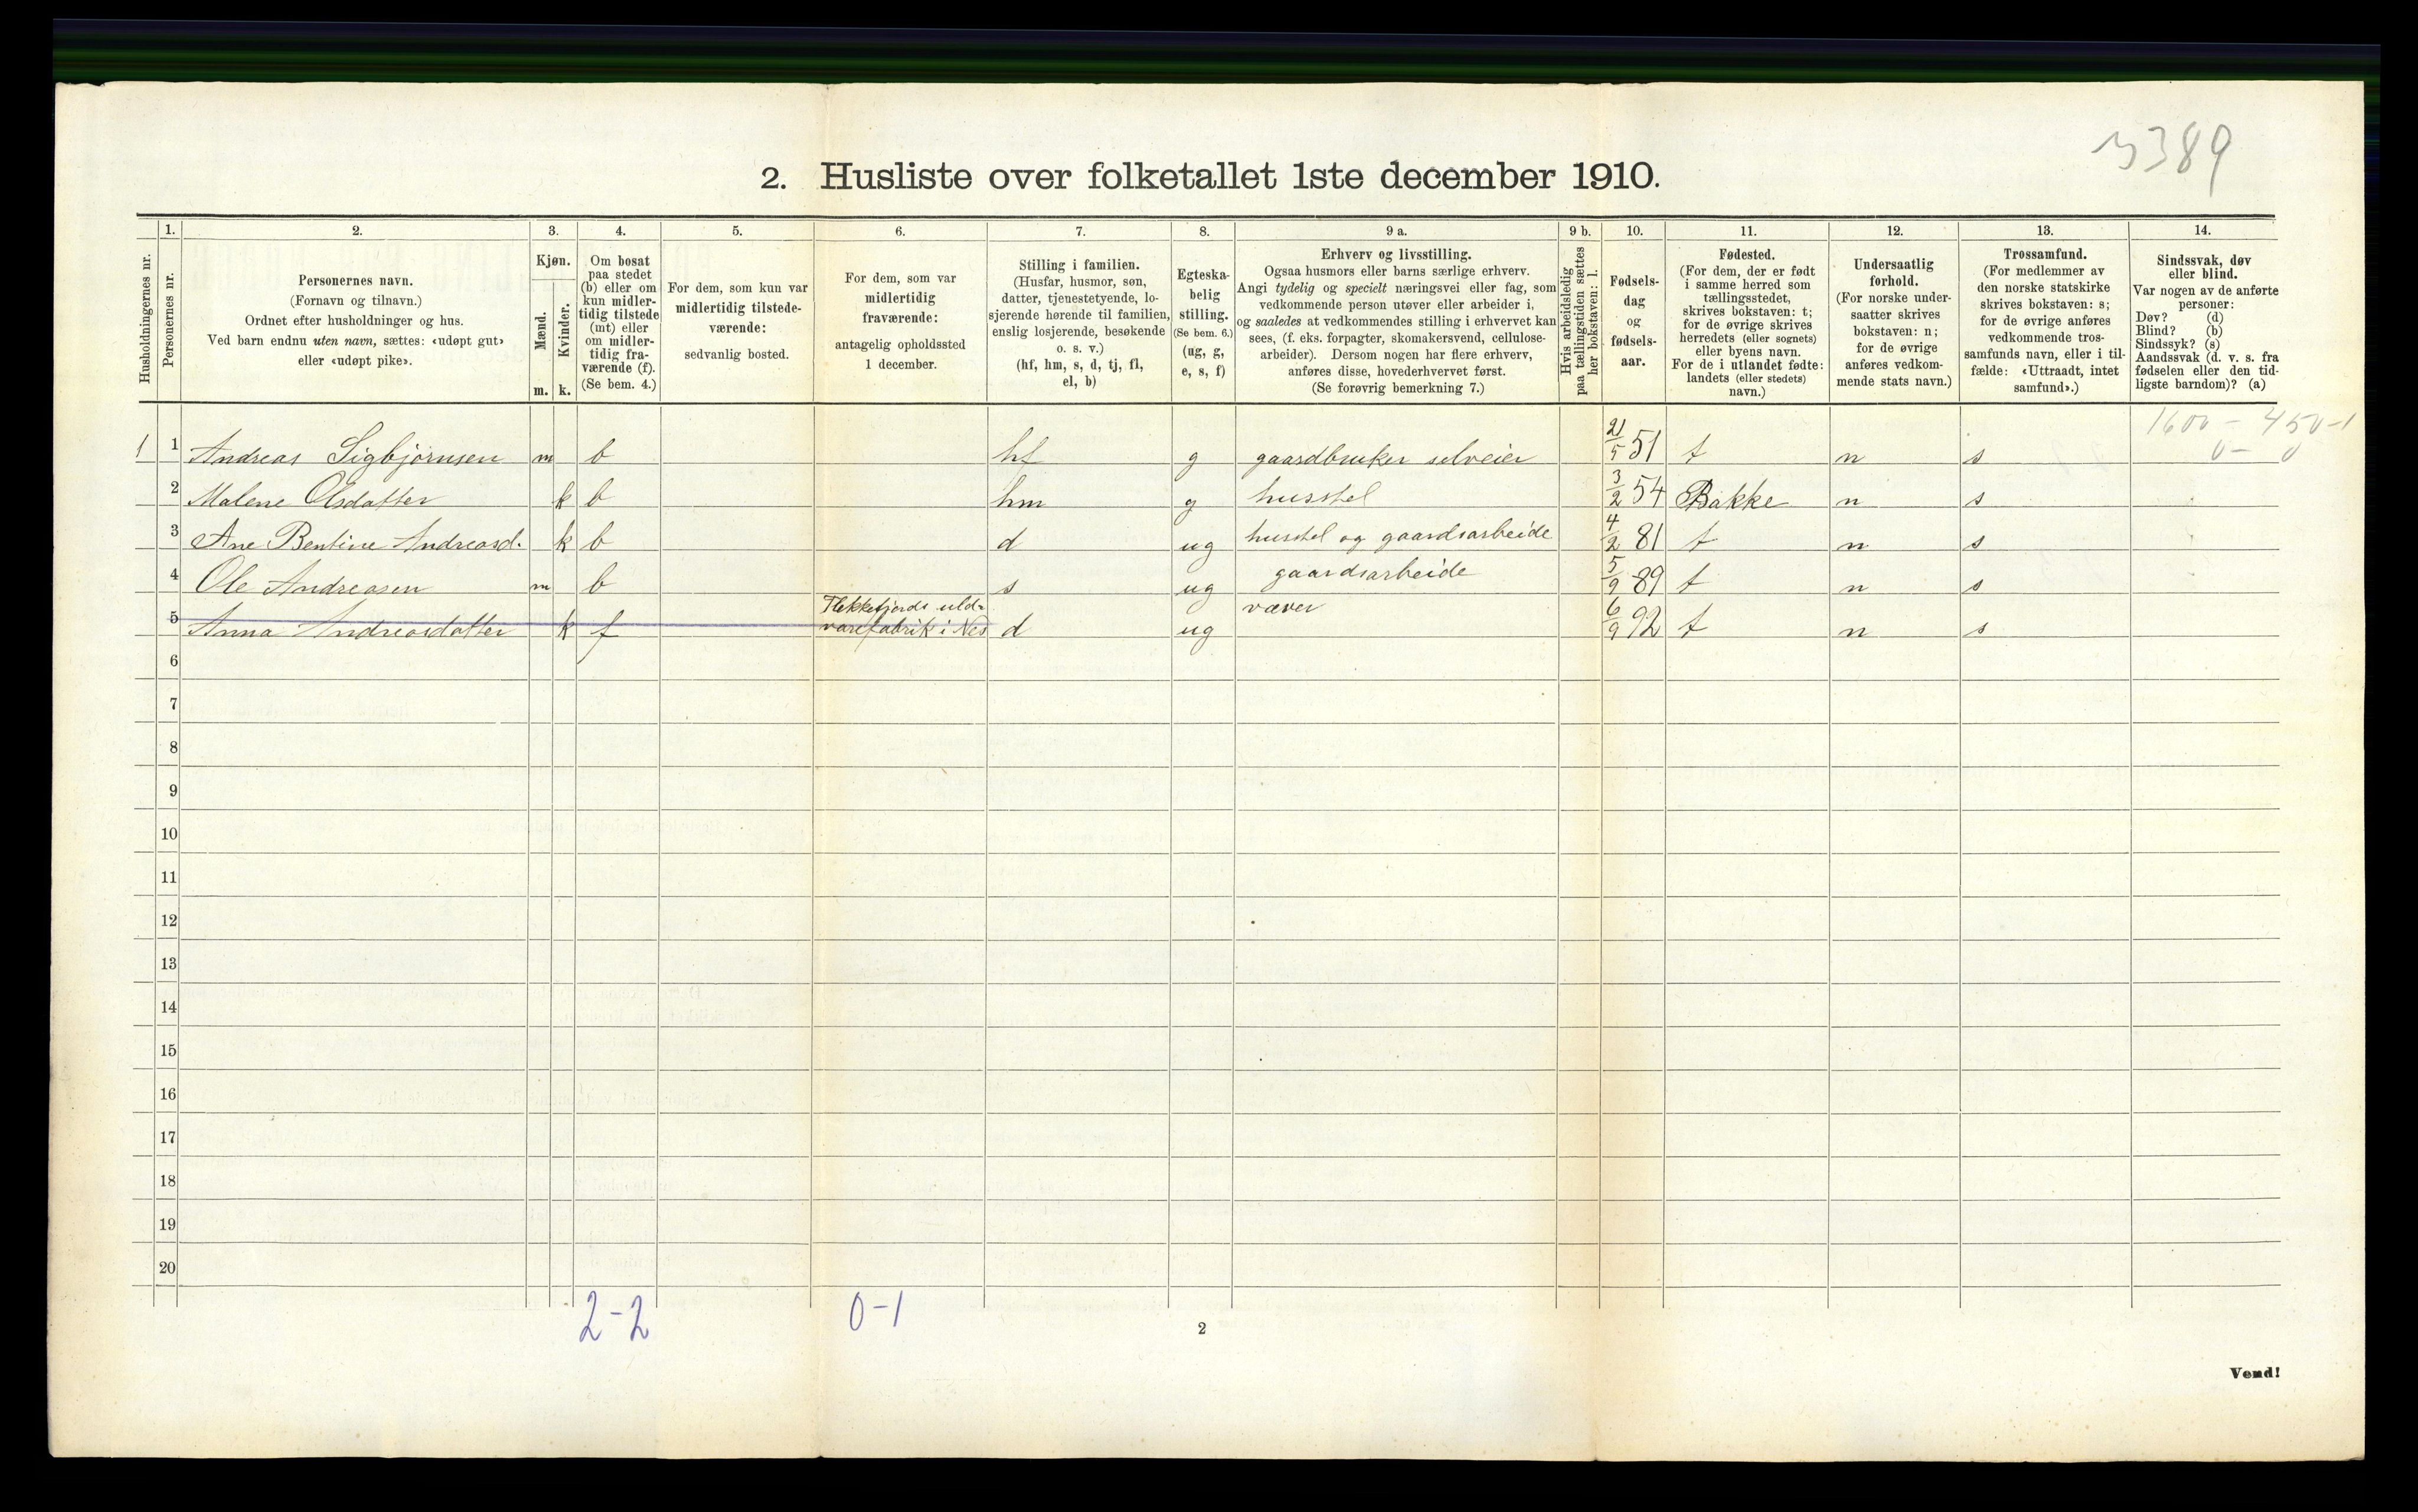 3389
2. Husliste over folketallet 1ste december 1910.
Husholdningernes nr.
1.
Personernes nr.
2.
Personernes navn.
(Fornavn og tilnavn.)
Ordnet efter husholdninger og hus.
Ved barn endnu uten navn, sættes: «udøpt gut»
eller «udøpt pike».
3.
Kjøn.
Mænd.
Kvinder.
m. k.
4.
Om bosat
paa stedet
(b) eller om
kun midler-
tidig tilstede
(mt) eller
om midler-
tidig fra-
værende (f).
(Se bem. 4.)
5.
For dem, som kun var
midlertidig tilstede-
værende:
sedvanlig bosted.
6.
For dem, som var
midlertidig
fraværende:
antagelig opholdssted
1 december.
7.
Stilling i familien.
(Husfar, husmor, søn,
datter, tjenestetyende, lo-
sjerende hørende til familien,
enslig losjerende, besøkende
o. s. v.)
(hf, hm, s, d, tj, fl,
el, b)
8.
Egteska-
belig
stilling.
(Se bem. 6.)
(ug, g,
e, s, f)
9 a.
Erhverv og livsstilling.
Ogsaa husmors eller barns særlige erhverv.
Angi tydelig og specielt næringsvei eller fag, som
vedkommende person utøver eller arbeider i,
og saaledes at vedkommendes stilling i erhvervet kan
sees, (f. eks. forpagter, skomakersvend, cellulose-
arbeider). Dersom nogen har flere erhverv,
anføres disse, hovederhvervet først.
(Se forøvrig bemerkning 7.)
9 b.
Hvis arbeidsledig
paa tællingstiden sættes
her bokstaven: l.
10.
Fødsels-
dag
og
fødsels-
aar.
11.
Fødested.
(For dem, der er født
i samme herred som
tællingsstedet,
skrives bokstaven: t;
for de øvrige skrives
herredets (eller sognets)
eller byens navn.
For de i utlandet fødte:
landets (eller stedets)
navn.)
12.
Undersaatlig
forhold.
(For norske under-
saatter skrives
bokstaven: n;
for de øvrige
anføres vedkom-
mende stats navn.)
13.
Trossamfund.
(For medlemmer av
den norske statskirke
skrives bokstaven: s;
for de øvrige anføres
vedkommende tros-
samfunds navn, eller i til-
fælde: «Uttraadt, intet
samfund».)
14.
Sindssvak, døv
eller blind.
Var nogen av de anførte
personer:
Døv? (d)
Blind? (b)
Sindssyk? (s)
Aandssvak (d. v. s. fra
fødselen eller den tid-
ligste barndom)? (a)
1600 - 450-1
0 - 0
1 1 Andreas Sigbjørnsen m b hf g gaardbruker selveier 21/5 51 t n s
2 Malene Olsdatter k b hm g husstel 3/2 54 Bakke n s
3 Ane Bentine Andreasd. k b d ug husstel og gaardsarbeide 4/2 81 t n s
4 Ole Andreasen m b s ug gaardsarbeide 5/9 89 t n s
5 Anna Andreasdatter k f Flekkefjords uld-
varefabrik i Nes d ug væver 6/9 92 t n s
6
7
8
9
10
11
12
13
14
15
16
17
18
19
20
2-2 0-1
2
Vend!